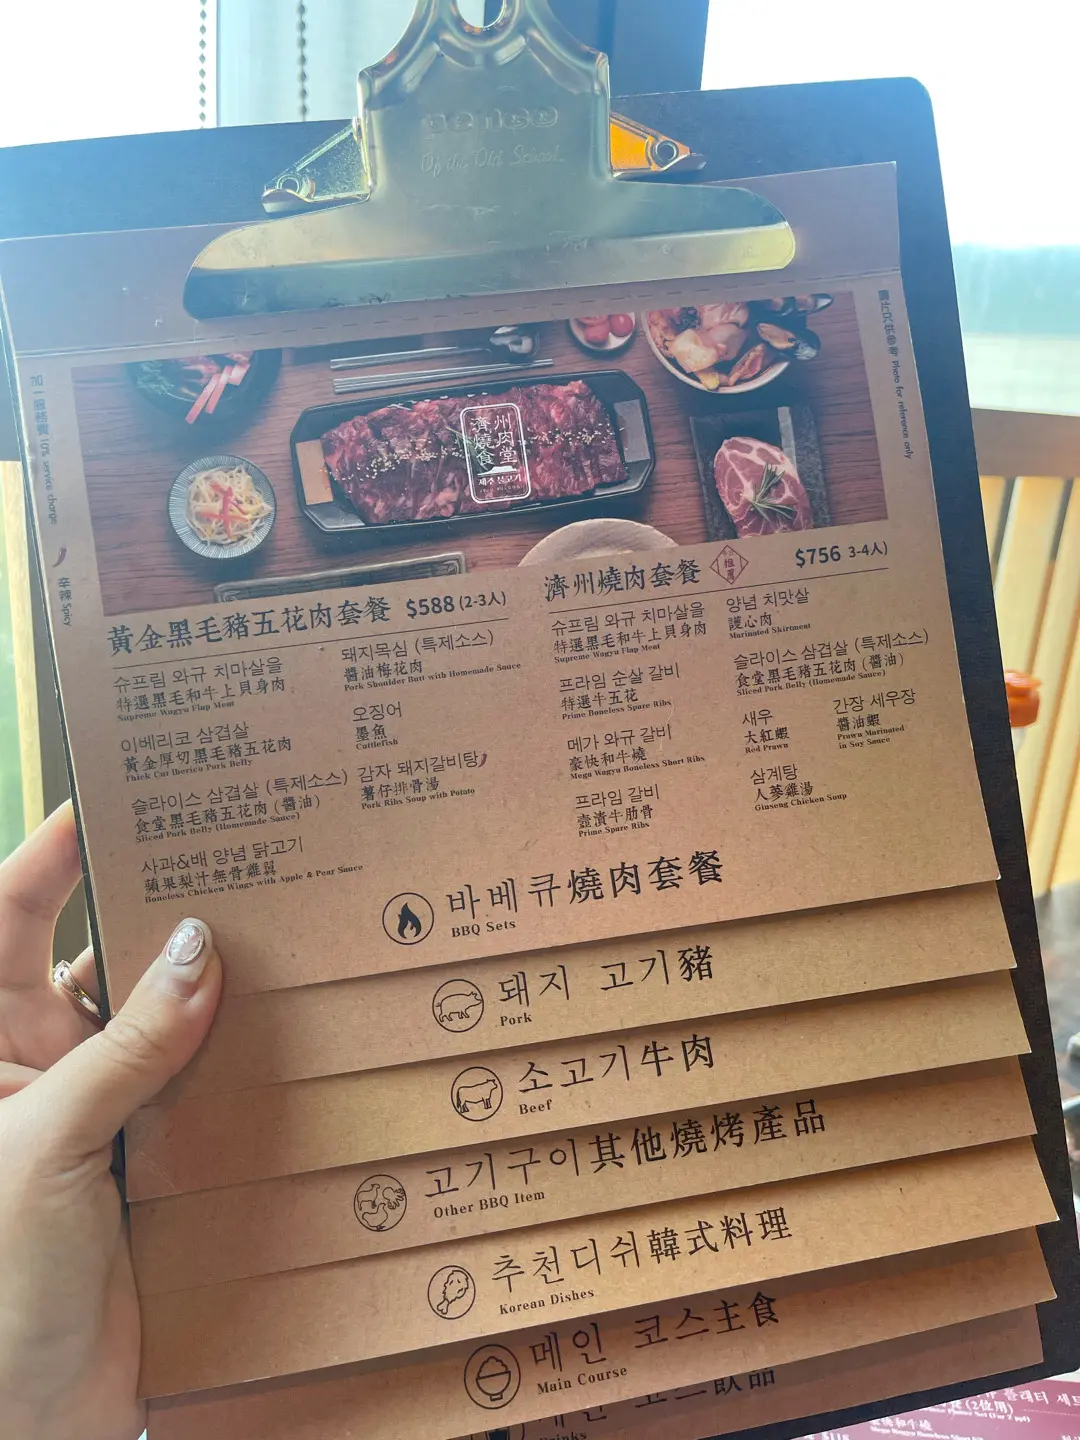 Of the Old School
加一服務費 10% service charge
辛辣 Spicy
圖片只供參考 Photo for reference only
濟州
燒肉
食堂
제주 불고기
黃金黑毛豬五花肉套餐 $588 (2-3人)
슈프림 와규 치마살을
特選黑毛和牛上貝身肉
Supreme Wagyu Flap Meat
이베리코 삼겹살
黃金厚切黑毛豬五花肉
Thick Cut Iberico Pork Belly
슬라이스 삼겹살 (특제소스)
食堂黑毛豬五花肉 (醬油)
Sliced Pork Belly (Homemade Sauce)
사과&배 양념 닭고기
蘋果梨汁無骨雞翼
Boneless Chicken Wings with Apple & Pear Sauce
돼지목심 (특제소스)
醬油梅花肉
Pork Shoulder Butt with Homemade Sauce
오징어
墨魚
Cuttlefish
감자 돼지갈비탕
薯仔排骨湯
Pork Ribs Soup with Potato
濟州燒肉套餐 推薦 $756 3-4人)
슈프림 와규 치마살을
特選黑毛和牛上貝身肉
Supreme Wagyu Flap Meat
프라임 순살 갈비
特選牛五花
Prime Boneless Spare Ribs
메가 와규 갈비
豪快和牛燒
Mega Wagyu Boneless Short Ribs
프라임 갈비
壺漬牛肋骨
Prime Spare Ribs
양념 치맛살
護心肉
Marinated Skirtment
슬라이스 삼겹살 (특제소스)
食堂黑毛豬五花肉 (醬油)
Sliced Pork Belly (Homemade Sauce)
새우
大紅蝦
Red Prawn
간장 새우장
醬油蝦
Prawn Marinated
in Soy Sauce
삼계탕
人蔘雞湯
Ginseng Chicken Soup
바베큐燒肉套餐
BBQ Sets
돼지 고기豬
Pork
소고기牛肉
Beef
고기구이其他燒烤產品
Other BBQ Item
추천디쉬韓式料理
Korean Dishes
메인 코스主食
Main Course
飲品
Drinks
플래터 세트
(2位用)